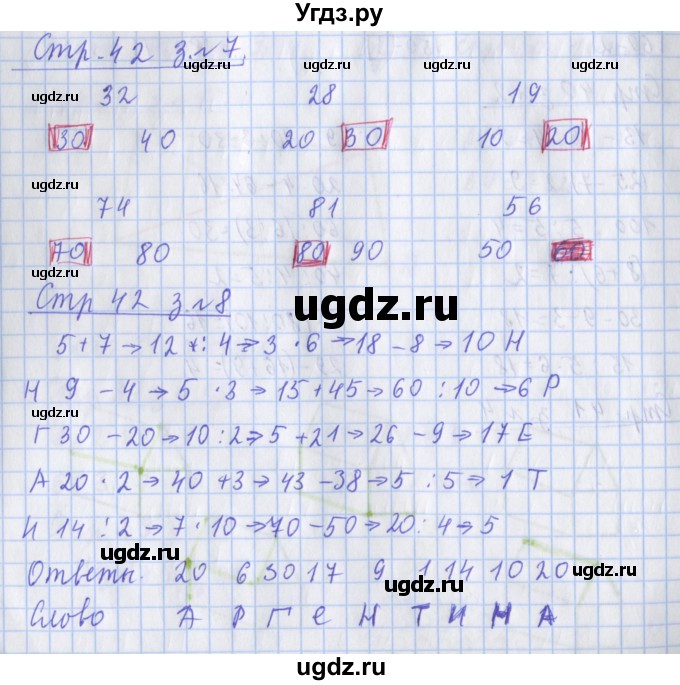 Угдз.ру
Стр. 42 з.№7.
ugdz.ru ugdz.ru ugdz.ru
32 28 19
30 40 20 30 10 20
ugdz.ru
74 81 56
70 80 80 90 50 60
ugdz.ru
Стр 42 з.№8
ugdz.ru
5+7→12 : 4→3 · 6→18 - 8→10 Н
Н 9 - 4→5 · 3→15+45→60 : 10→6 Р
ugdz.ru ugdz.ru
Г 30 - 20→10:2→5 + 21→26 - 9→17 Е
А 20 · 2→40 + 3→43 - 38→5 : 5→1 Т
ugdz.ru ugdz.ru
И 14 : 2→7 · 10→70 - 50→20 : 4→5
ugdz.ru
Ответы. 20 6 30 17 9 1 14 10 20
ugdz.ru ugdz.ru
Слово А Р Г Е Н Т И Н А
ugdz.ru